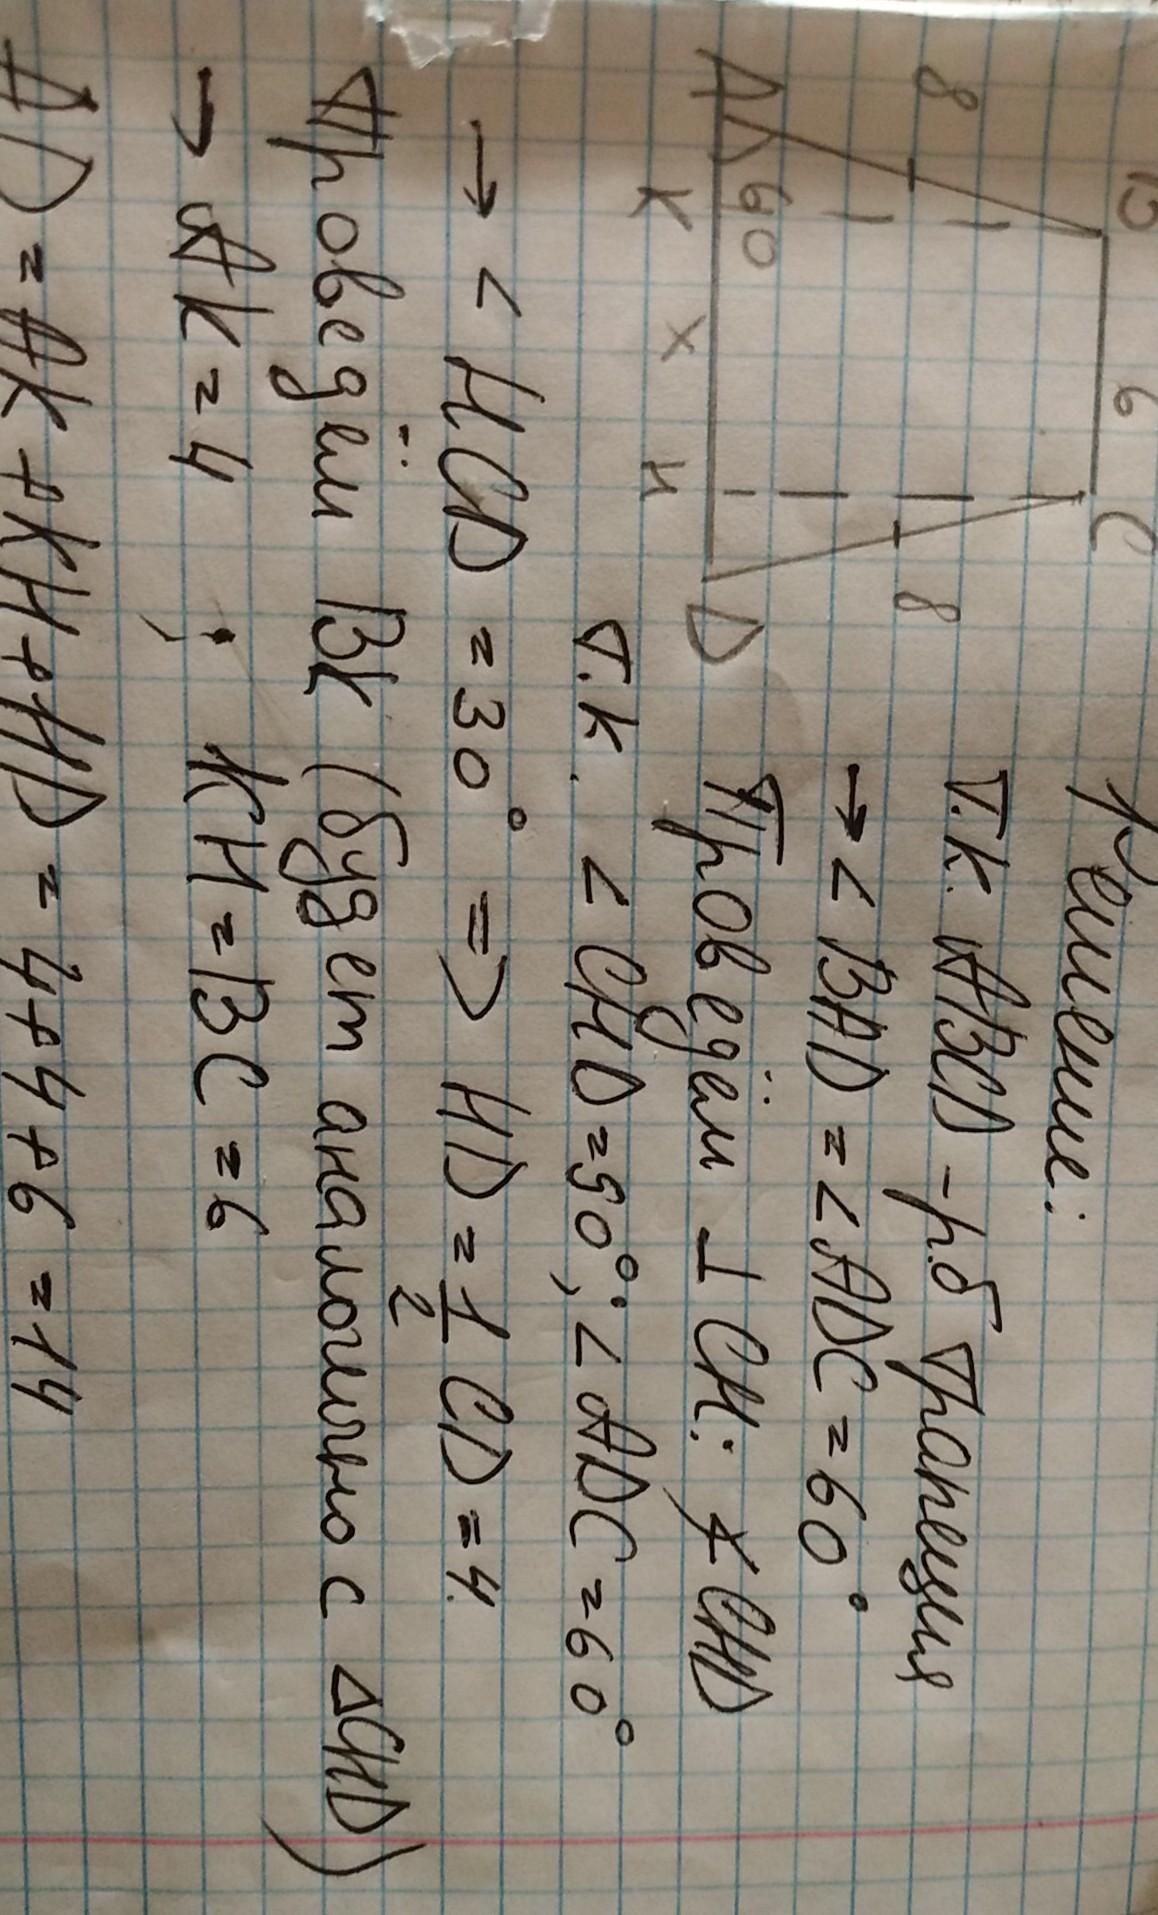 B 6 C
8 8
60
A D
K x H
Решение:
Т.к. ABCD - р.б трапеция
→ < BAD = < ADC = 60°
Проведём ⊥ CH: CHD
Т.к. < CHD = 90°; < ADC = 60°
→ < HCD = 30° => HD = 1/2 CD = 4.
Проведём BK (будет аналогично с ΔCHD)
→ AK = 4 ; KH = BC = 6
AD = AK + KH + HD = 4 + 4 + 6 = 14